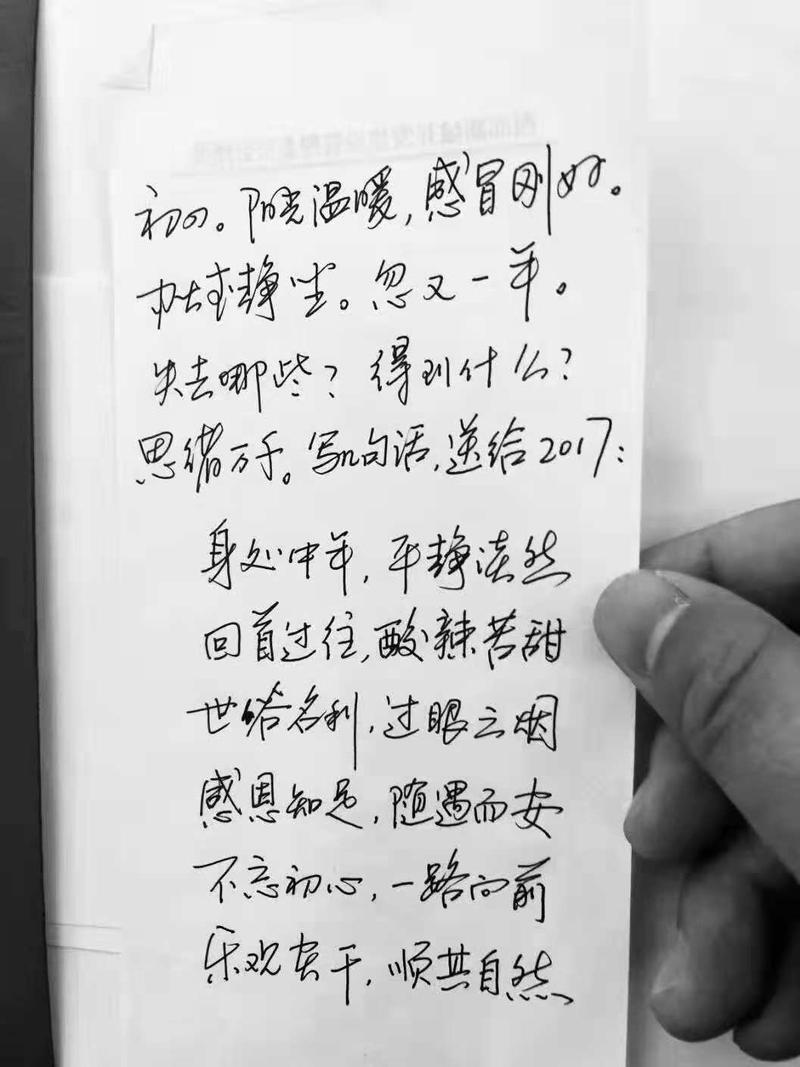 初四。阳光温暖,感冒刚好。
静坐。忽又一年。
失去哪些?得到什么?
思绪万千。写几句话,送给2017:
身处中年,平静淡然
回首过往,酸辣苦甜
世俗名利,过眼云烟
感恩知足,随遇而安
不忘初心,一路向前
乐观实干,顺其自然